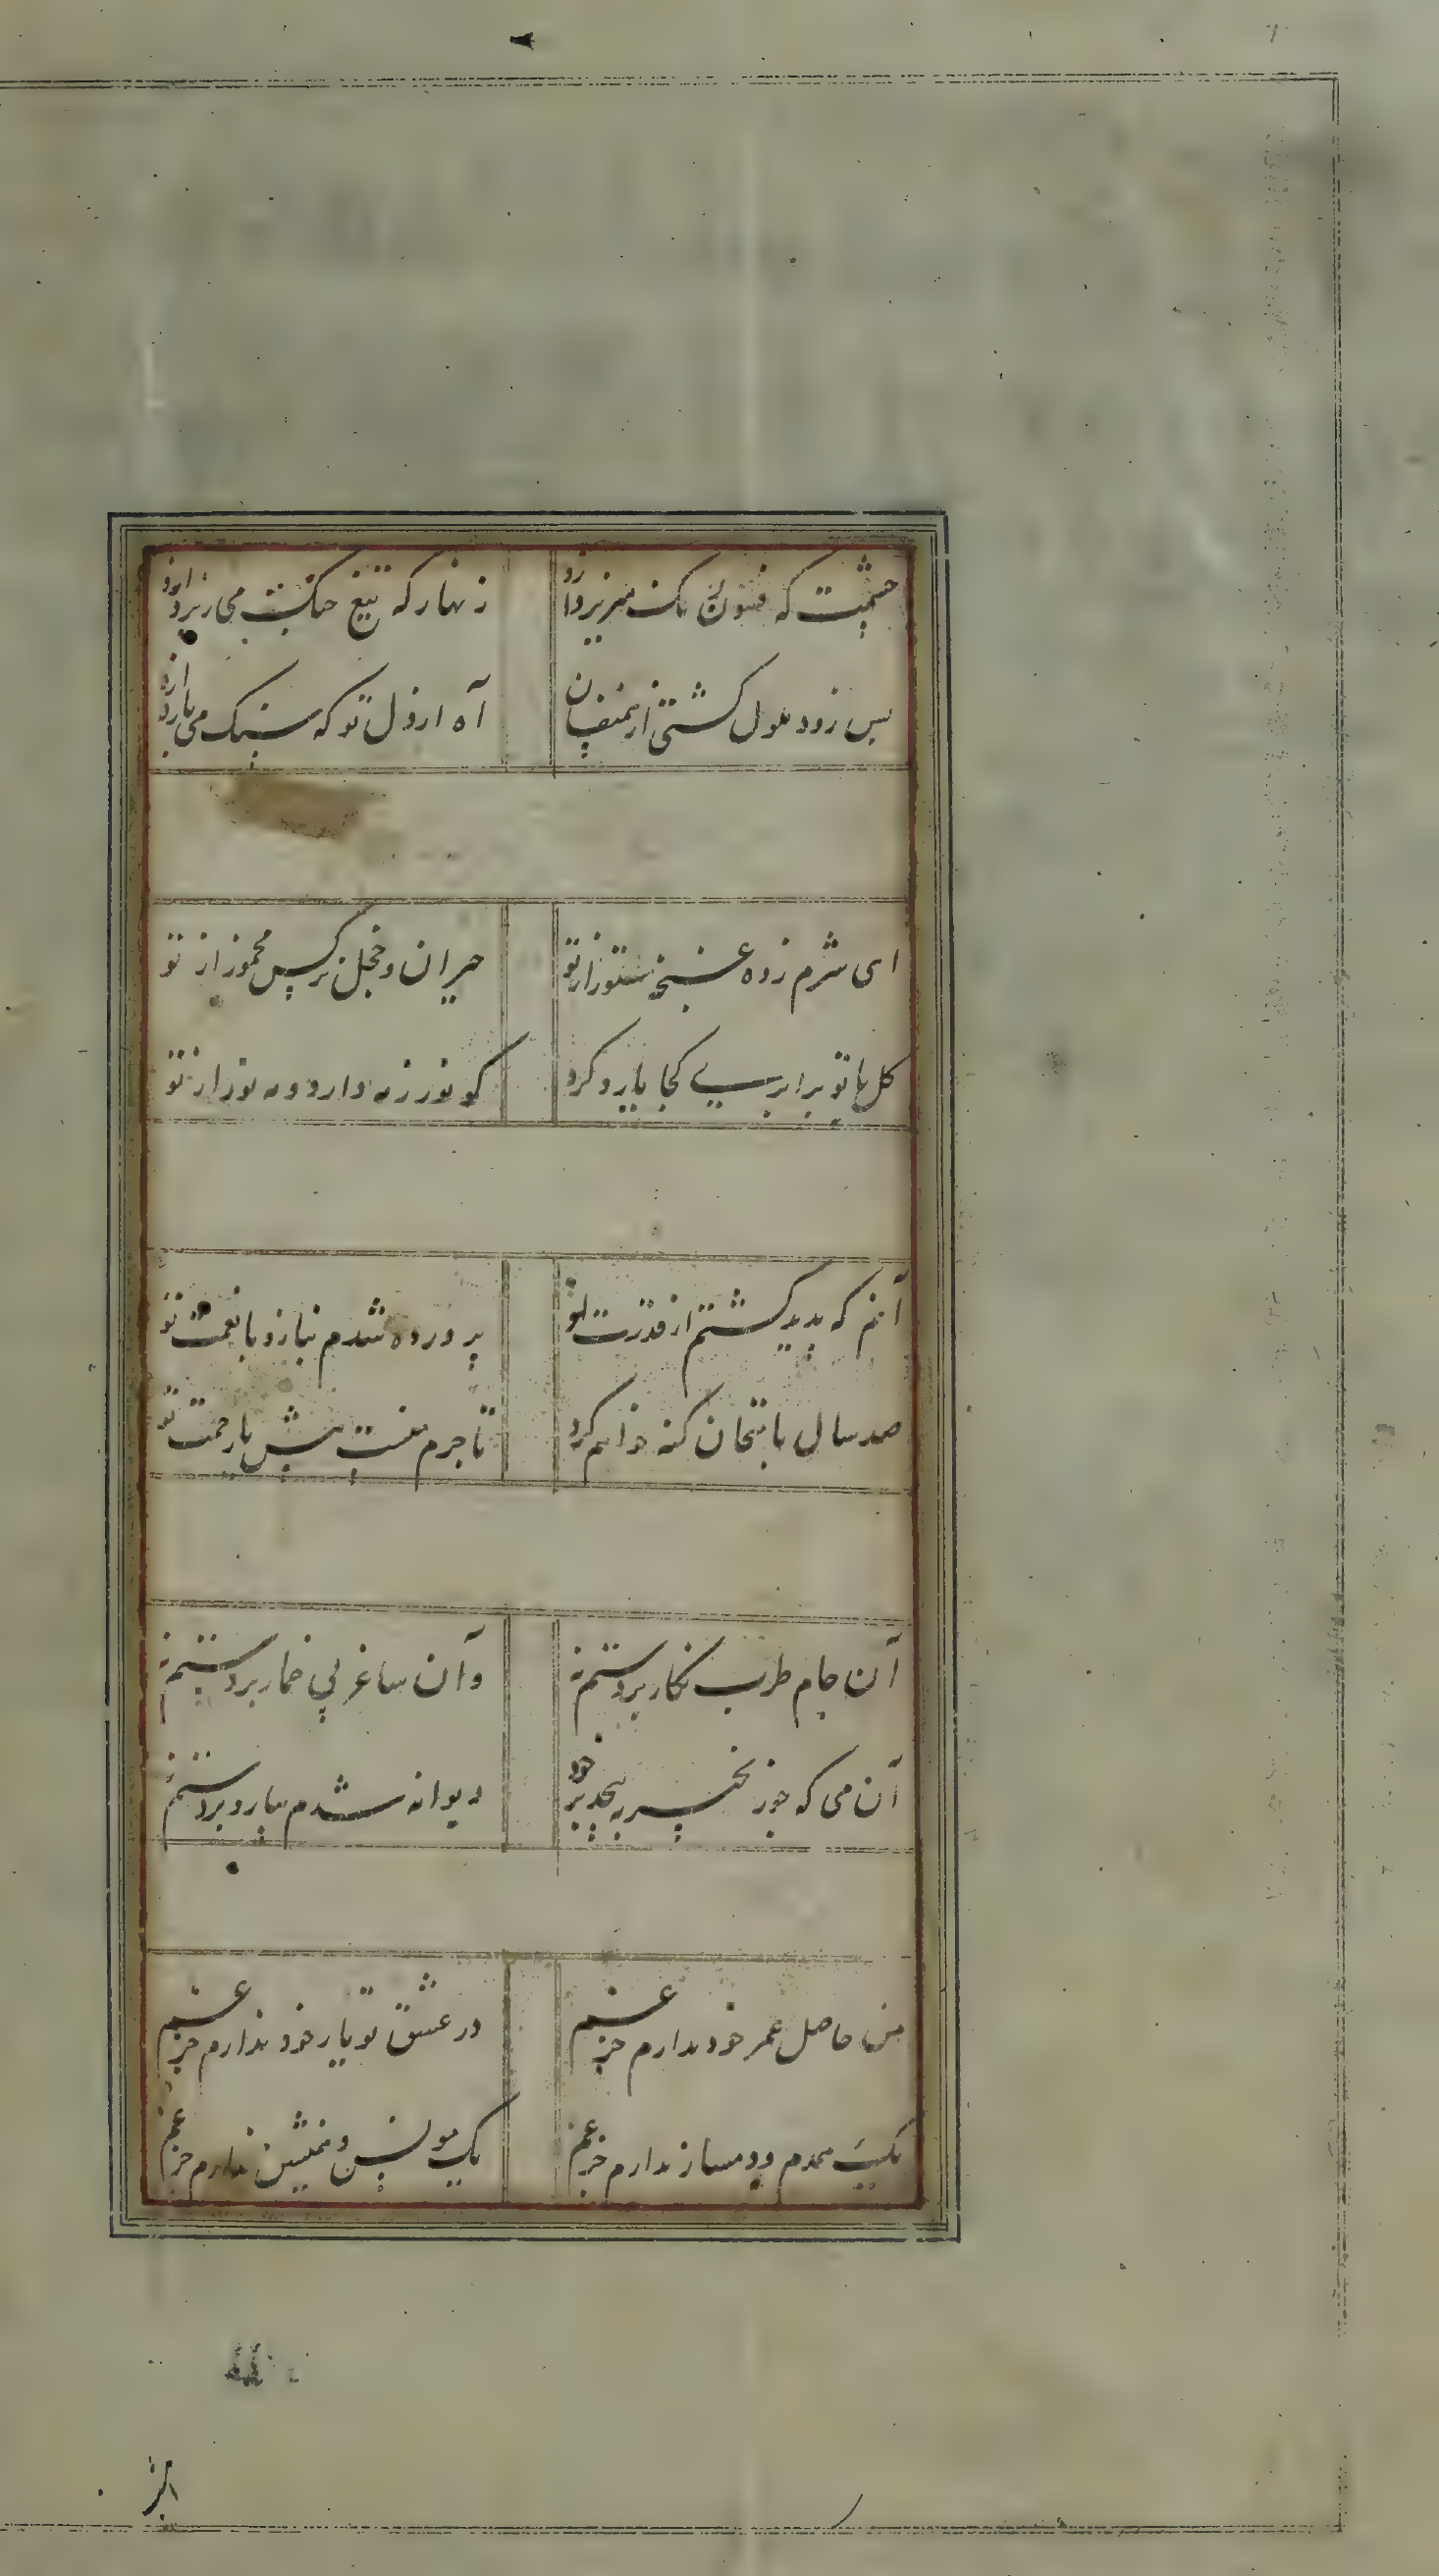 چشمت که فسون رنگ میریزد ازو زنهار که تیغ جنگ می ریزد ازو
بس زود ملول کشتی از همنفسان آه از دل تو که سنک می بارد ازو
ای شرم زده غنچه مستور از تو حیران و خجل نرکس مخمور از تو
کل با تو برابری کجا یارد کرد کو نور ز مه دارد و مه نور از تو
آنم که پدید کشتم از قدرت تو پرورده شدم بناز و با نعمت تو
صد سال بامتحان کنه خواهم کرد تا جرم منست بیش یا رحمت تو
آن جام طرب نکار بر دستم نه وآن ساغر پی خمار بر دستم نه
آن می که چو زنجیر بپیچد بر خود دیوانه شدم بیار و بر دستم نه
من حاصل عمر خود ندارم جز غم در عشق تو یار خود ندارم جز غم
یک همدم و دمساز ندارم جز غم یک مونس و همنشین ندارم جز غم